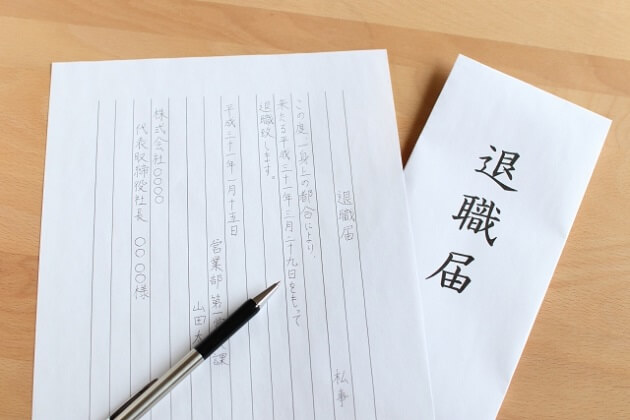 退職届
私事
この度 一身上の都合により、
来たる平成三十一年三月二十九日をもって
退職致します。
平成三十一年一月十五日
営業部 第一 課
山田
株式会社○○○○
代表取締役社長 ○○ ○○様
退職届